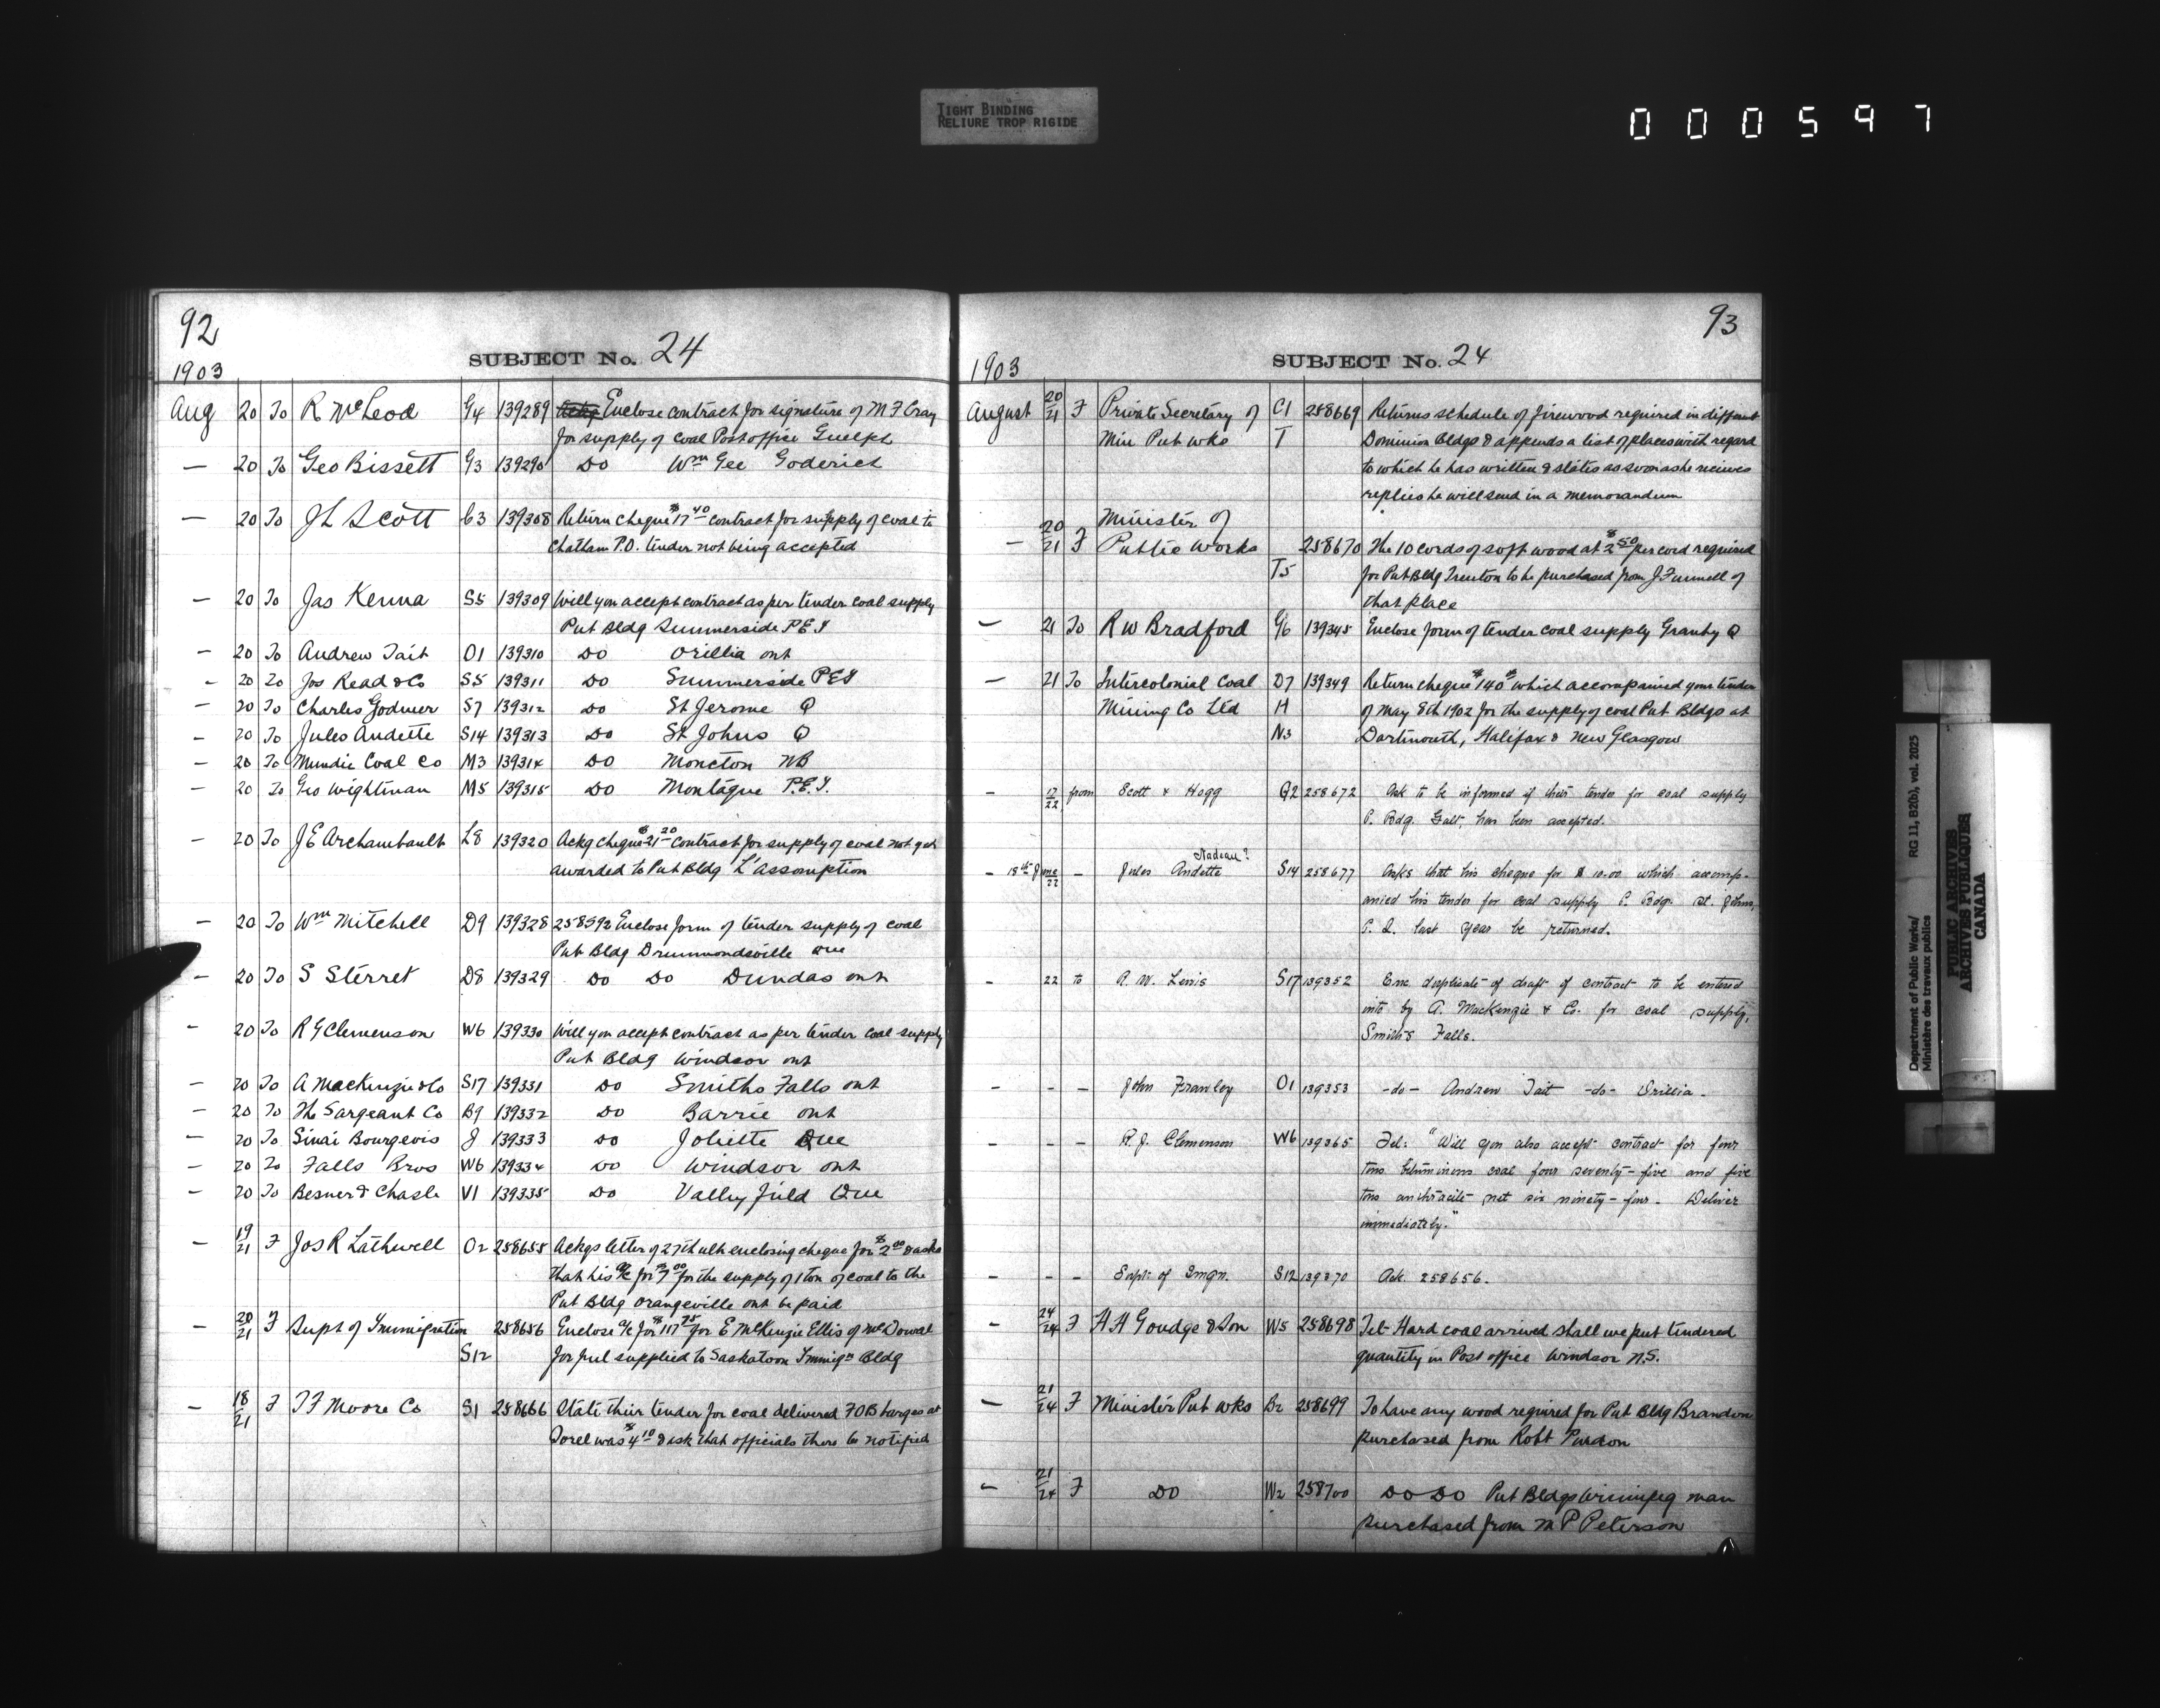 TIGHT BINDING
RELIURE TROP RIGIDE
000597
92
SUBJECT No. 24
1903
Aug 20 To R McLeod G4 139289 Ackg Enclose contract for signature of M F Cray
for supply of coal Post office Guelph
— 20 To Geo Bissett G3 139290 Do Wm Gee Goderich
— 20 To J L Scott C3 139308 Return cheque $17 40 contract for supply of coal to
Chatham P.O. tender not being accepted
— 20 To Jas Kenna S5 139309 Will you accept contract as per tender coal supply
Pub Bldg Summerside P E I
— 20 To Andrew Tait O1 139310 Do Orillia ont
— 20 To Jos Read & Co S5 139311 Do Summerside P E I
— 20 To Charles Godmer S7 139312 Do St Jerome Q
— 20 To Jules Audette S14 139313 Do St Johns Q
— 20 To Mundie Coal Co M3 139314 Do Moncton NB
— 20 To Geo Wightman M5 139315 Do Montague P.E.I.
— 20 To J E Archambault L8 139320 Ackg cheque $21 20 contract for supply of coal not yet
awarded to Pub Bldg L'assomption
— 20 To Wm Mitchell D9 139328 258592 Enclose form of tender supply of coal
Pub Bldg Drummondsville Que
— 20 To S Sterret D8 139329 Do Do Dundas ont
— 20 To R G Clemenson W6 139330 Will you accept contract as per tender coal supply
Pub Bldg Windsor ont
— 20 To A MacKenzie & Co S17 139331 Do Smiths Falls ont
— 20 To The Sargeant Co B9 139332 Do Barrie ont
— 20 To Sinai Bourgeois J 139333 Do Joliette Que
— 20 To Falls Bros W6 139334 Do Windsor ont
— 20 To Besner & Chasle V1 139335 Do Valleyfield Que
— 19/21 F Jos R Lathwell O2 258655 Ackgs letter of 27th ult enclosing cheque for $2 00 & asks
that his a/c for $7 00 for the supply of 1 ton of coal to the
Pub Bldg Orangeville ont be paid
— 20/21 F Supt of Immigration 258656 Enclose a/c for $117 75 for E McKenzie Ellis of McDowal
S12 for fuel supplied to Saskatoon Immign Bldg
— 18/21 F T F Moore Co S1 258666 State their tender for coal delivered FOB barges at
Sorel was $4 10 & ask that officials there be notified
93
SUBJECT No. 24
1903
August 20/21 F Private Secretary of C1 258669 Returns schedule of firewood required in different
Min Pub wks T Dominion Bldgs & appends a list of places with regard
to which he has written & states as soon as he receives
replies he will send in a memorandum
Minister of
— 20/21 F Public works 258670 The 10 cords of soft wood at $2 50 per cord required
T5 for Pub Bldg Trenton to be purchased from J Funnell of
that place
— 21 To R W Bradford G6 139345 Enclose form of tender coal supply Granby Q
— 21 To Intercolonial Coal D7 139349 Return cheque $140 which accompanied your tender
Mining Co Ltd H of May 8th 1902 for the supply of coal Pub Bldgs at
N3 Dartmouth, Halifax & New Glasgow
— 17/22 from Scott & Hogg G2 258672 Ask to be informed if their tender for coal supply
P. Bdg. Galt, has been accepted.
Nadeau?
— 18th June/22 — Jules Audette S14 258677 Asks that his cheque for $10.00 which accomp-
anied his tender for coal supply P. Bdg. St. Johns,
P. Q. last year be returned.
— 22 to A. W. Lewis S17 139352 Enc. duplicate of draft of contract to be entered
into by A. MacKenzie & Co. for coal supply,
Smith's Falls.
— — — John Frawley O1 139353 -do- Andrew Tait -do- Orillia.
— — — R. J. Clemenson W6 139365 Tel: "Will you also accept contract for four
tons bituminous coal four seventy-five and five
tons anthracite net six ninety-four. Deliver
immediately."
— — — Supt. of Imgn. S12 139370 Ack. 258656.
— 24/24 F H H Goudge & Son W5 258698 Tel- Hard coal arrived shall we put tendered
quantity in Post office Windsor N.S.
— 21/24 F Minister Pub wks B2 258699 To have any wood required for Pub Bldg Brandon
purchased from Robt Purdon
— 21/24 F Do W2 258700 Do Do Pub Bldgs Winnipeg man
purchased from M P Peterson
Department of Public Works/
Ministère des travaux publics
RG 11, B2(b), vol. 2025
PUBLIC ARCHIVES
ARCHIVES PUBLIQUES
CANADA